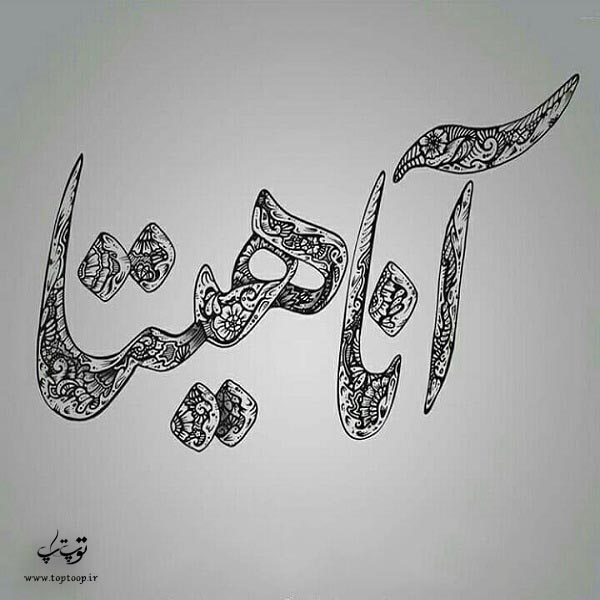 آناهیتا
توپ تاپ
www.toptoop.ir